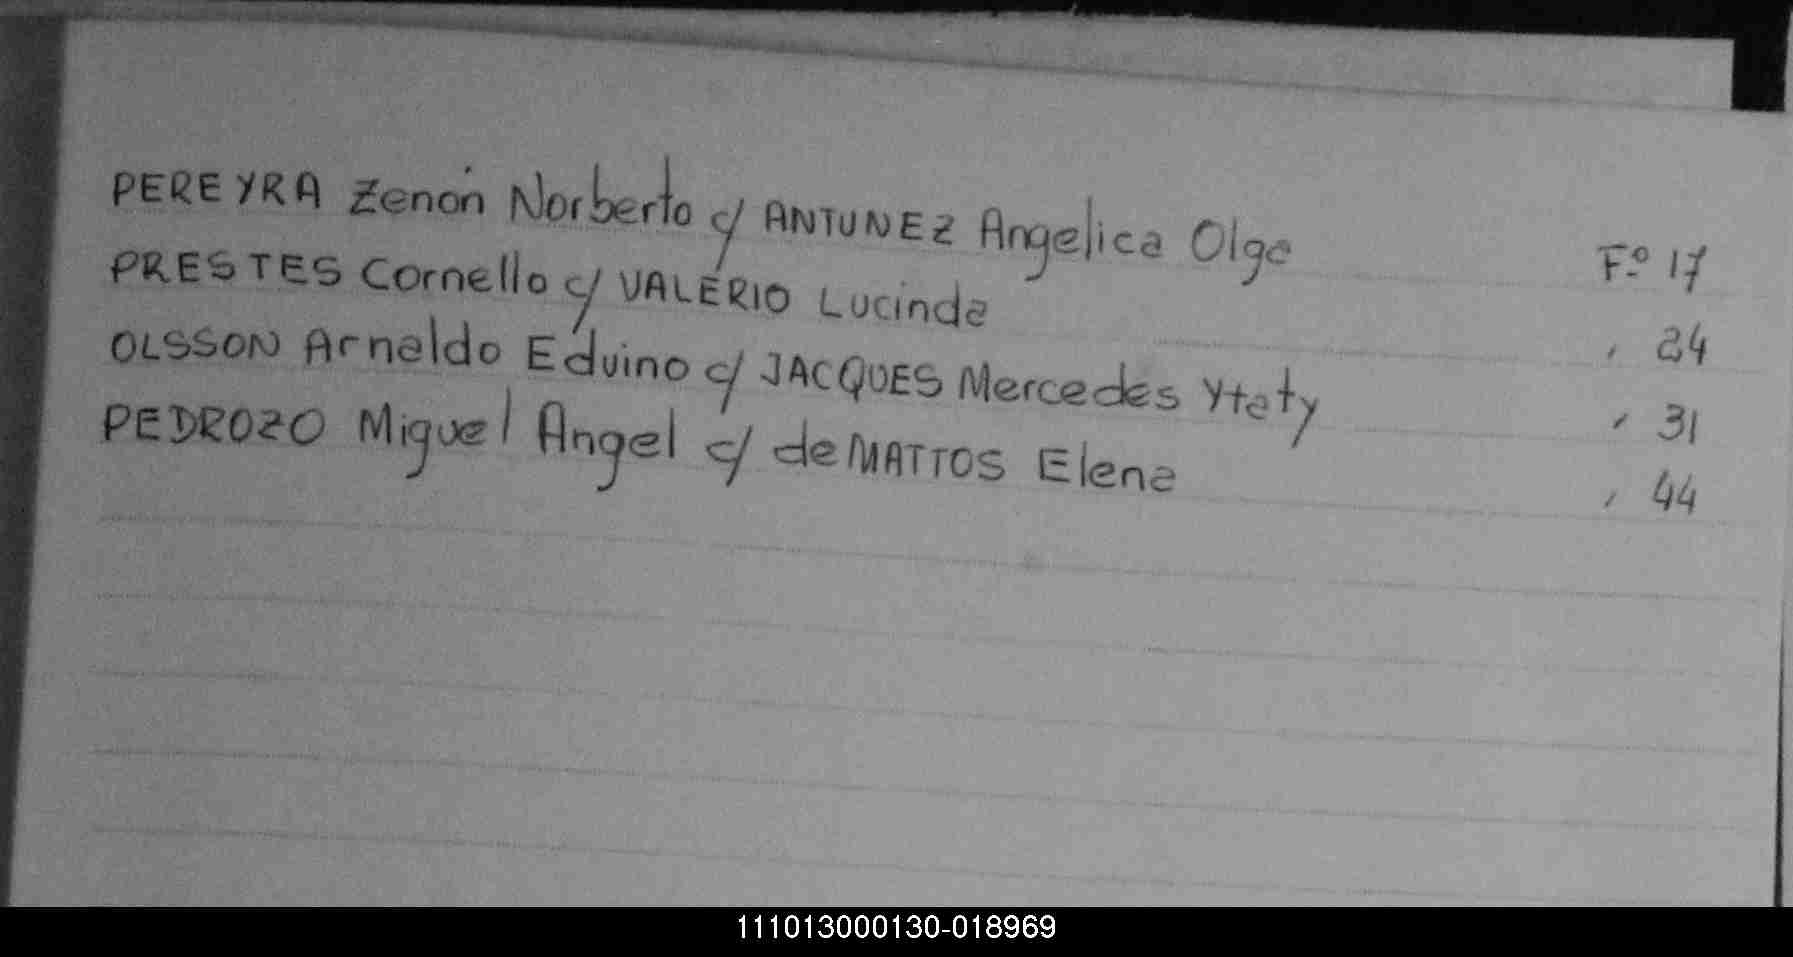 PEREYRA Zenón Norberto c/ ANTUNEZ Angelica Olga Fº 17
PRESTES Cornello c/ VALÉRIO Lucinda , 24
OLSSON Arnaldo Eduino c/ JACQUES Mercedes Ytaty , 31
PEDROZO Miguel Angel c/ de MATTOS Elena , 44
111013000130-018969